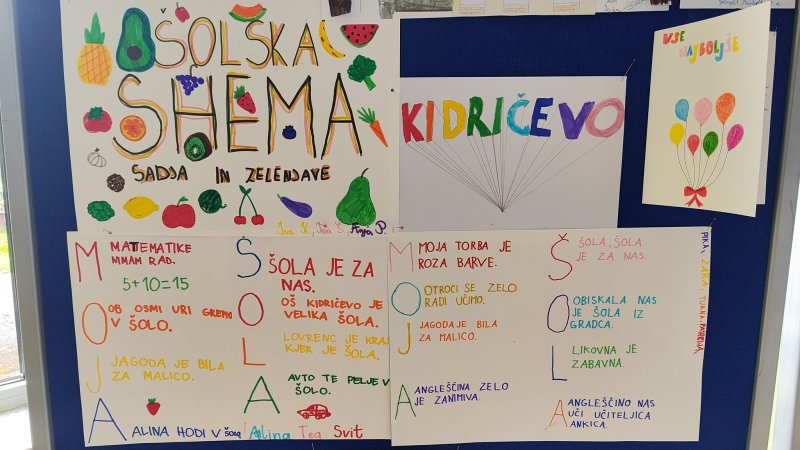 ŠOLSKA
SHEMA
SADJA IN ZELENJAVE
Iva K., Iva S., Anja P.
KIDRIČEVO
VSE
NAJBOLJŠE
M
MATEMATIKE
NIMAM RAD.
5+10=15
O
OB OSMI URI GREMO
V ŠOLO.
J
JAGODA JE BILA
ZA MALICO.
A
ALINA HODI V ŠOLO
Š
ŠOLA JE ZA
NAS.
O
OŠ KIDRIČEVO JE
VELIKA ŠOLA.
L
LOVRENC JE KRAJ
KJER JE ŠOLA.
A
AVTO TE PELJE V
ŠOLO.
Alina Tea Svit
M
MOJA TORBA JE
ROZA BARVE.
O
OTROCI ŠE ZELO
RADI UČIMO.
J
JAGODA JE BILA
ZA MALICO.
A
ANGLEŠČINA ZELO
JE ZANIMIVA.
Š
ŠOLA, ŠOLA
JE ZA NAS.
O
OBISKALA NAS
JE ŠOLA IZ
GRADCA.
L
LIKOVNA JE
ZABAVNA.
A
ANGLEŠČINO NAS
UČI UČITELJICA
ANKICA.
PIKA, ZARA,